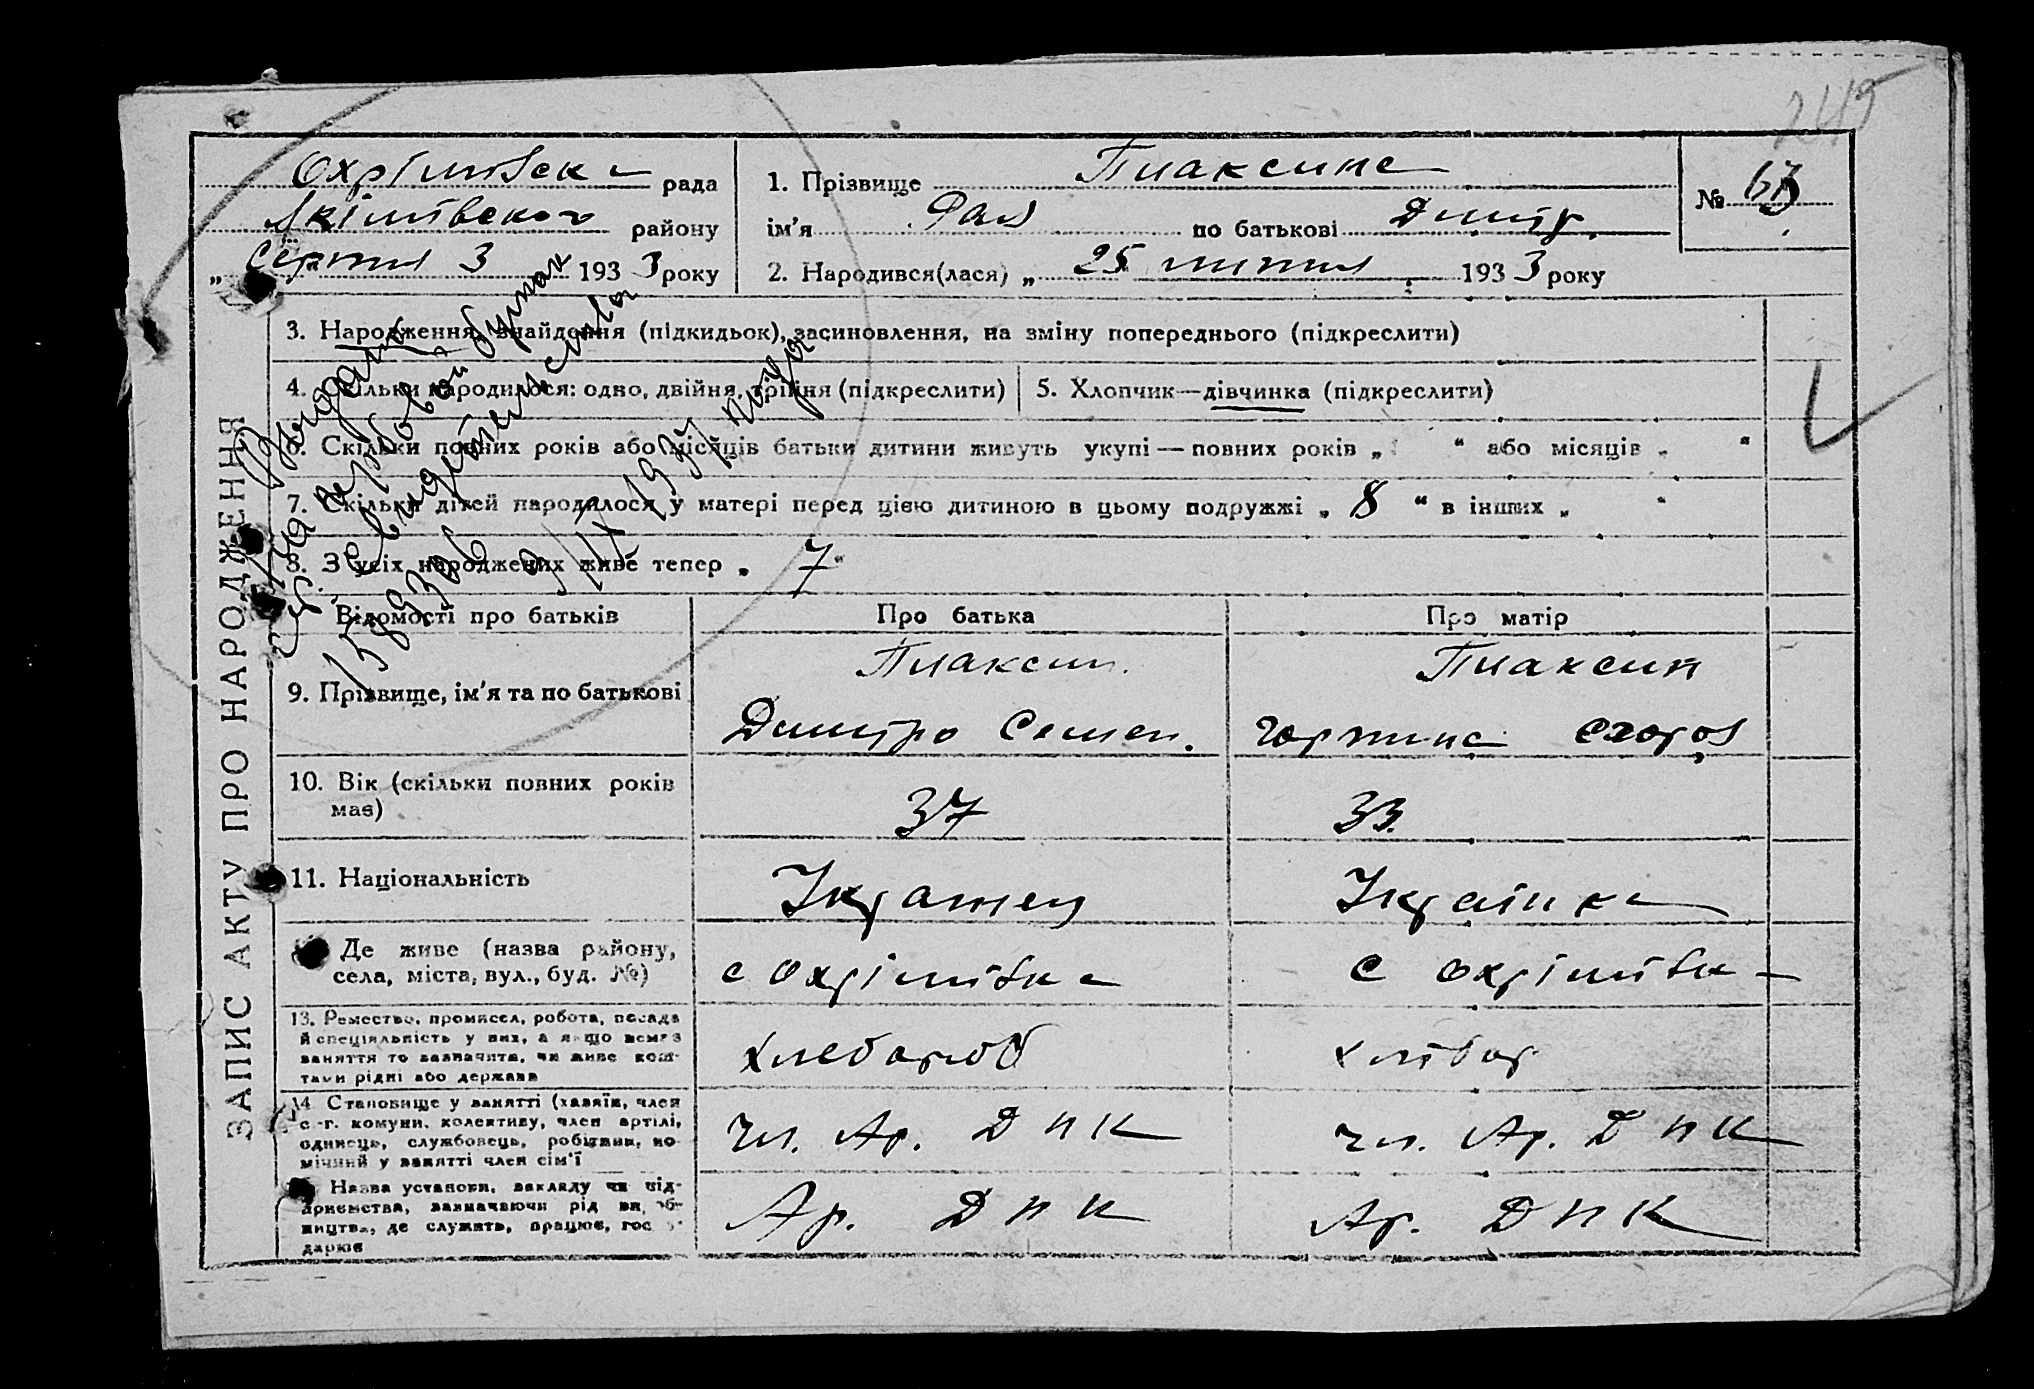 249
Охрімівска рада
Якімівского району
„ Серпня 3 1933 року
1. Прізвище Плаксина
ім'я Рая по батькові Дмитр.
№ 63
2. Народився(лася) „ 25 липня 1933 року
3. Народження, знайдення (підкидьок), засиновлення, на зміну попереднього (підкреслити)
4. Скільки народилося: одно, двійня, трійня (підкреслити)
5. Хлопчик—дівчинка (підкреслити)
6. Скільки повних років або місяців батьки дитини живуть укупі — повних років „ “ або місяців „ “
7. Скільки дітей народилося у матері перед цією дитиною в цьому подружжі „ 8 “ в інших „ “
8. З усіх народжених живе тепер „ 7 “
ЗАПИС АКТУ ПРО НАРОДЖЕННЯ
Відомості про батьків
Про батька
Про матір
9. Прізвище, ім'я та по батькові
Плаксин.
Дмитро Семен.
Плаксин
10. Вік (скільки повних років
має)
37
33.
11. Національність
Украінец
Українка
Де живе (назва району,
села, міста, вул., буд. №)
с Охрімівка
с Охрімівка
13. Ремество, промисел, робота, посада
й спеціяльність у них, а якщо немає
заняття то зазначити, чи живе кош-
тами рідні або держави
хлебороб
хлібор
14 Становище у занятті (хазяїн, член
с.-г. комуни, колективу, член артілі,
одинець, службовець, робітник, по-
мічний у занятті член сім'ї
чл. Ар. ДНК
чл. Ар. ДНК
Назва установи, закладу чи під-
приємства, зазначаючи рід вироб-
ництва, де служить, працює, госпо-
дарює
Ар. ДНК
Ар. ДНК